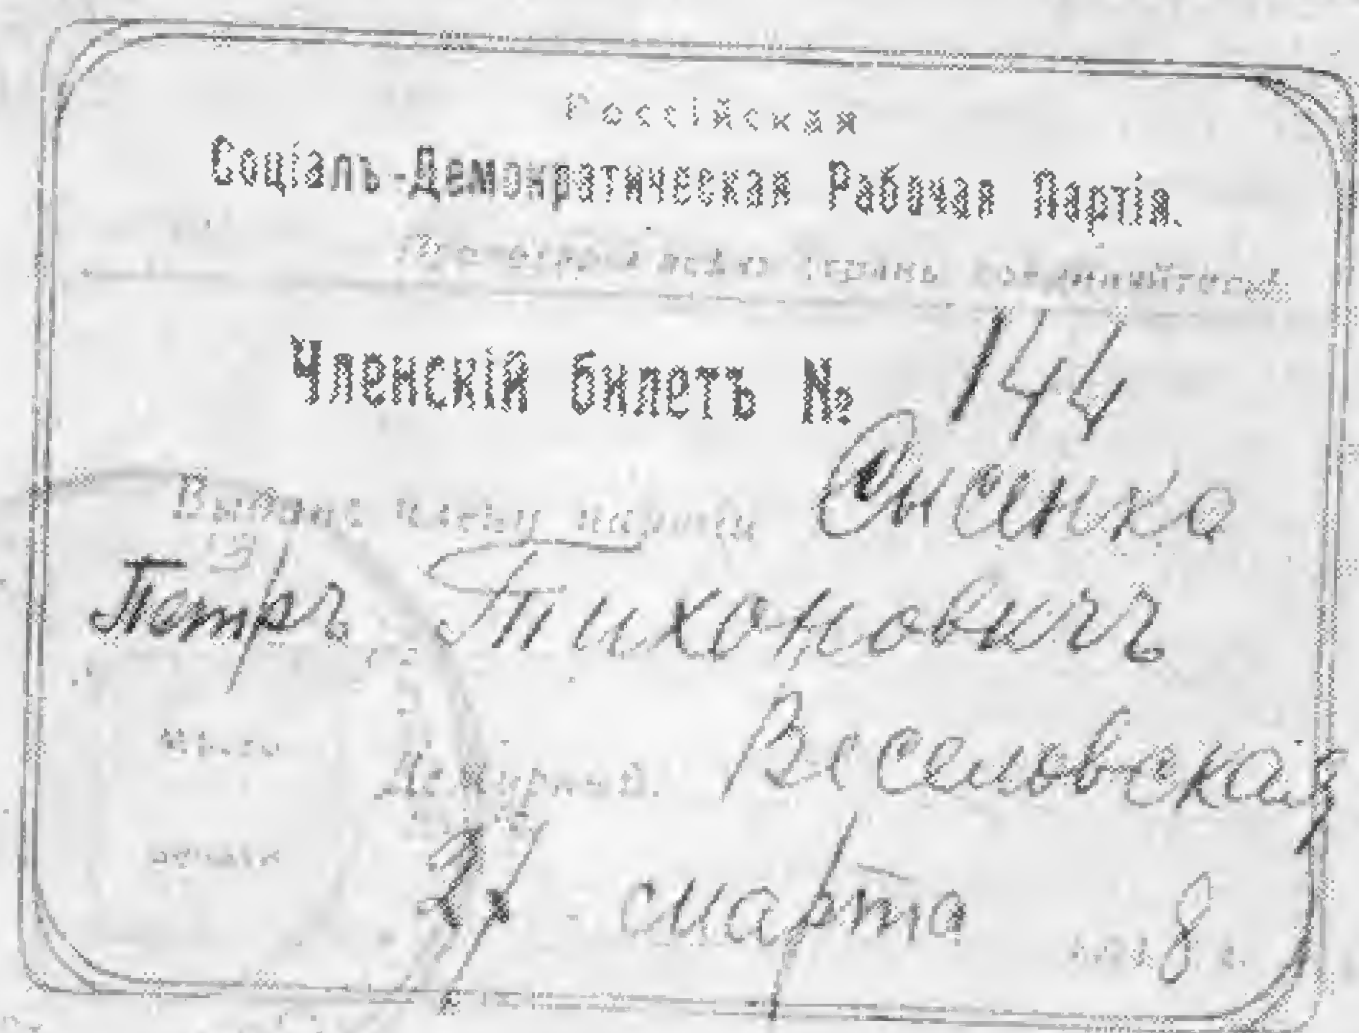 Россійская
Соціалъ-Демократическая Рабочая Партія.
Членскій билетъ № 144
Выданъ члену партіи Сысенко
Петръ Тихоновичъ
Мѣсто Дежурный. Веселовская
печати 21 марта 8 г.